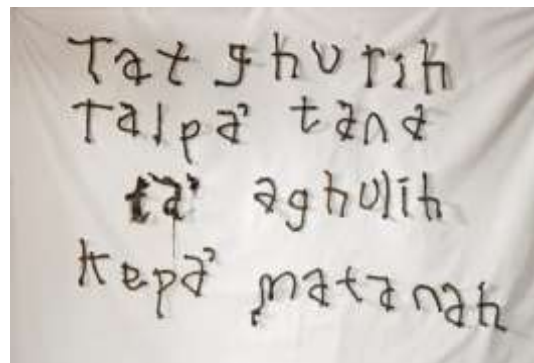 Tat ghurih
Talpa' tana
ta' aghulih
kepa' matanah